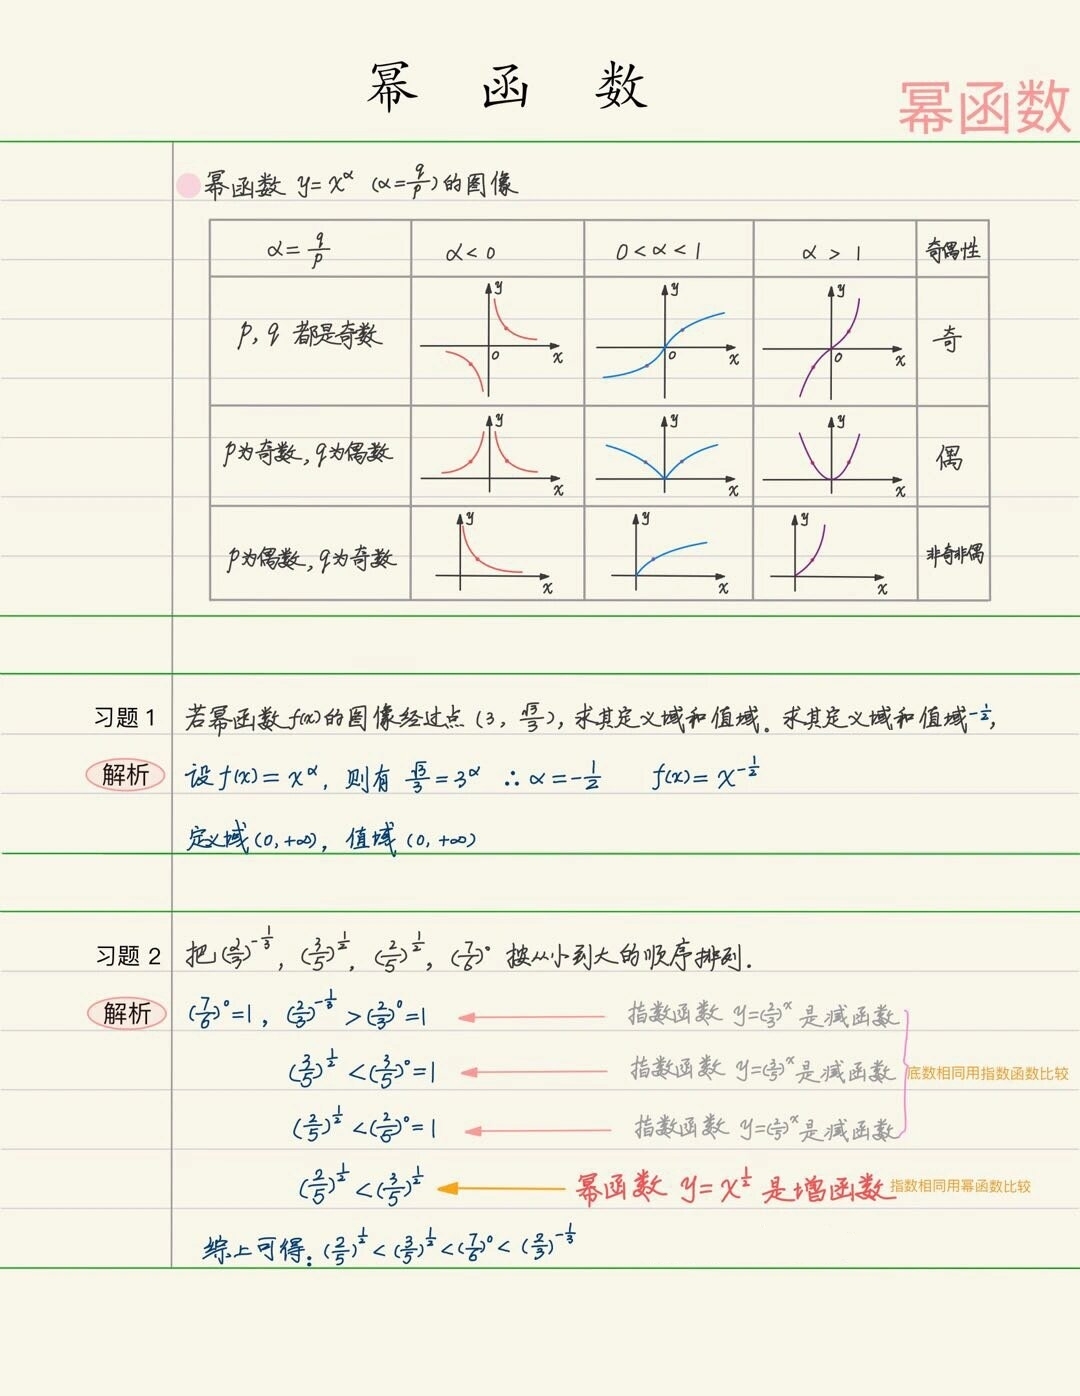 幂 函 数
幂函数
幂函数 y=x^α (α=q/p)的图像
α=q/p α<0 0<α<1 α>1 奇偶性
p,q 都是奇数 y o x y o x y o x 奇
p为奇数,q为偶数 y x y x y x 偶
p为偶数,q为奇数 y x y x y x 非奇非偶
习题 1 若幂函数 f(x)的图像经过点 (3, √3/3), 求其定义域和值域. 求其定义域和值域-1/2,
解析 设 f(x)=x^α, 则有 √3/3=3^α ∴α=-1/2 f(x)=x^(-1/2)
定义域(0,+∞), 值域 (0,+∞)
习题 2 把(2/3)^(-1/3), (3/5)^(1/2), (2/5)^(1/2), (7/6)^0 按从小到大的顺序排列.
解析 (7/6)^0=1, (2/3)^(-1/3)>(2/3)^0=1 指数函数 y=(2/3)^x 是减函数
(3/5)^(1/2)<(3/5)^0=1 指数函数 y=(3/5)^x 是减函数 底数相同用指数函数比较
(2/5)^(1/2)<(2/6)^0=1 指数函数 y=(2/5)^x 是减函数
(2/5)^(1/2)<(3/5)^(1/2) 幂函数 y=x^(1/2) 是增函数 指数相同用幂函数比较
综上可得: (2/5)^(1/2)<(3/5)^(1/2)<(7/6)^0<(2/3)^(-1/3)